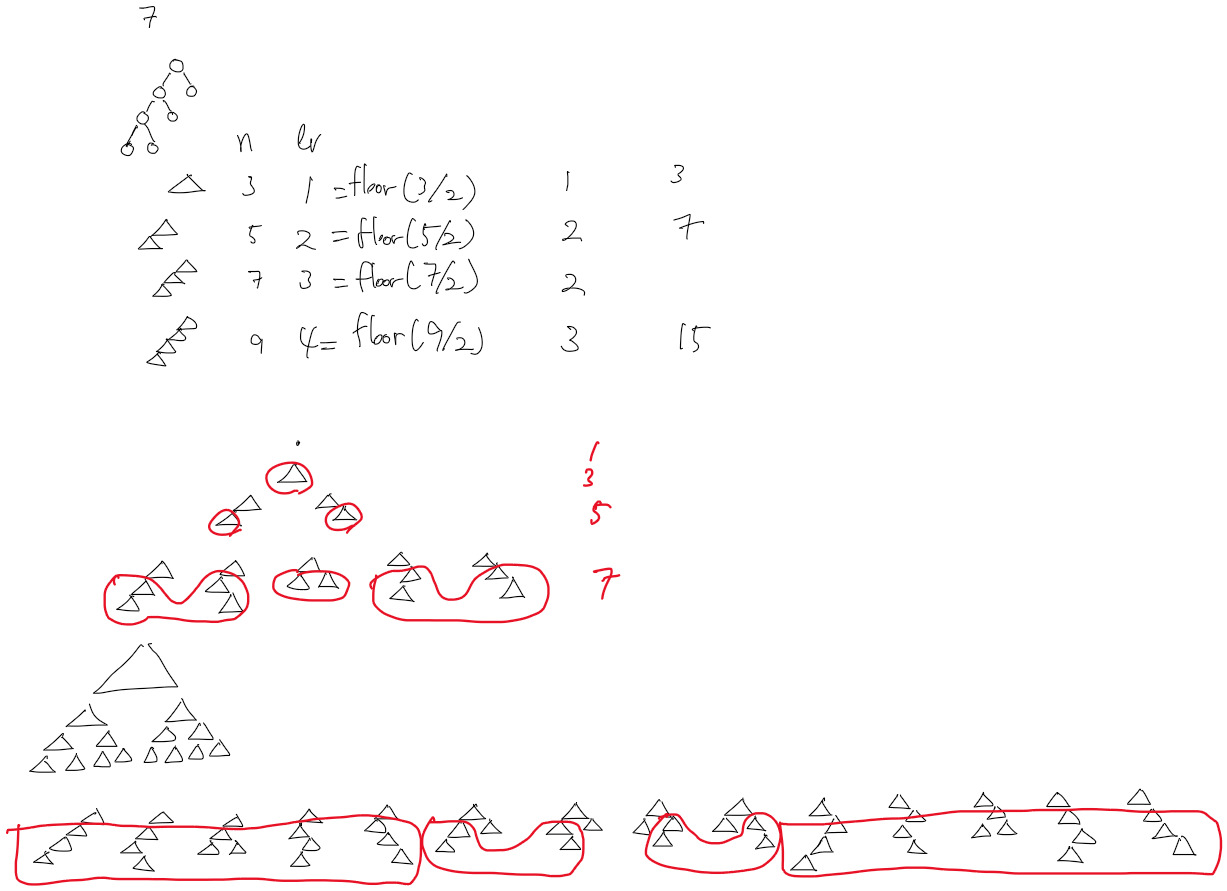 7
n lv
3 1 = floor(3/2) 1 3
5 2 = floor(5/2) 2 7
7 3 = floor(7/2) 2
9 4 = floor(9/2) 3 15
1
3
5
7